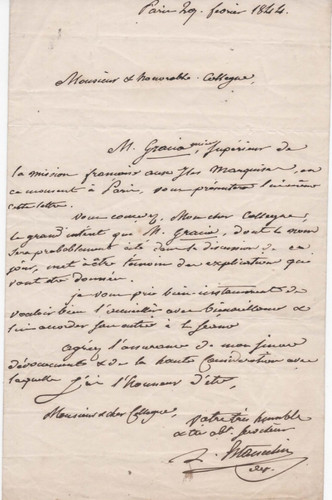 Paris 29. fevrier 1844.
Monsieur & honorable Collegue,
M. Gracia, Supérieur de
la mission francaise aux Iles Marquises, en
ce moment à Paris, vous
cette lettre.
Vous concevez, Mon cher Collegue,
le grand interet que M. Gracia, dont le nom
sera probablement cité dans la discussion de ce
jour, met à être temoin des explication qui
vont etre données.
je vous prie bien instamment de
vouloir bien l'accueillir avec bienveillance &
lui accorder
agréez l'assurance de mon sincere
dévouement & de la haute Consideration avec
laquelle j'ai l'honneur d'être,
Monsieur & cher Collegue,
votre très humble
& tres obt. serviteur